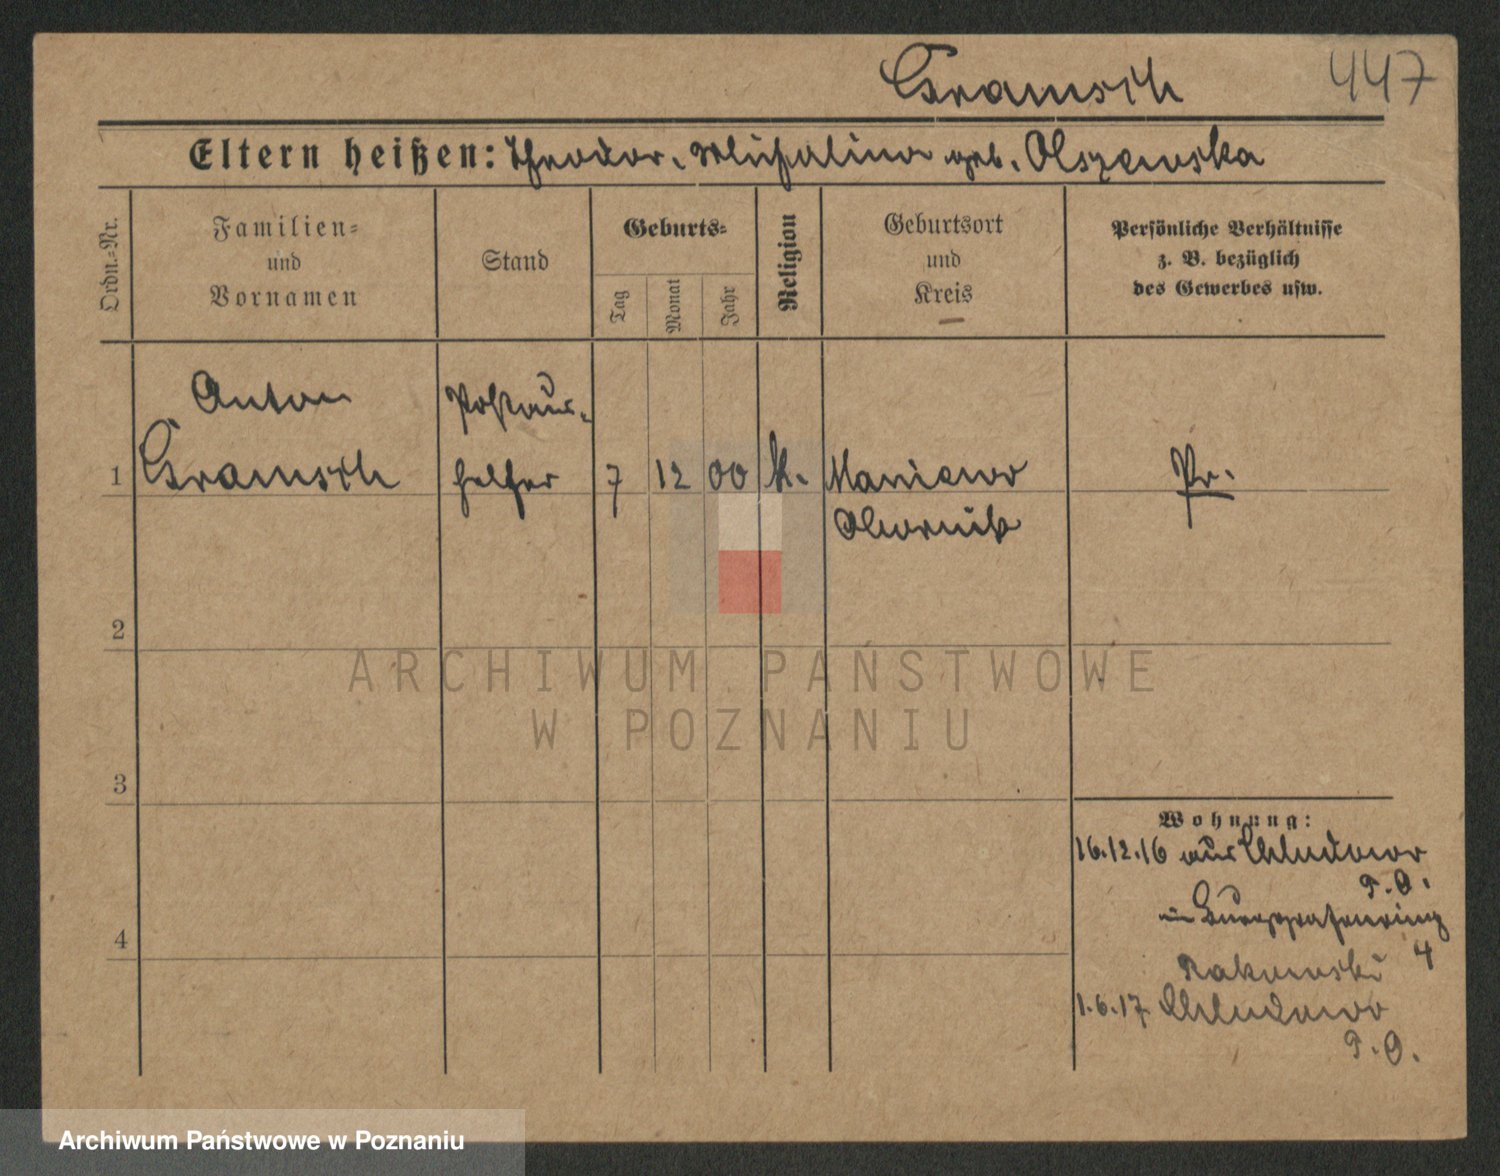 Gramsch 447
Eltern heißen: Theodor, geb. Olszewska
Ordn.-Nr.
Familien-
und
Vornamen
Stand
Geburts-
Tag
Monat
Jahr
Religion
Geburtsort
und
Kreis
Persönliche Verhältnisse
z. B. bezüglich
des Gewerbes usw.
Anton
Postaus-
1 Gramsch helfer 7 12 00 k. Maniewo Pr.
Obornik
2
ARCHIWUM PAŃSTWOWE
W POZNANIU
3
Wohnung:
16.12.16 aus Chludowo
P. O.
in Burggrafenring
4
4
Rakowski
1.6.17 Chludowo
P. O.
Archiwum Państwowe w Poznaniu